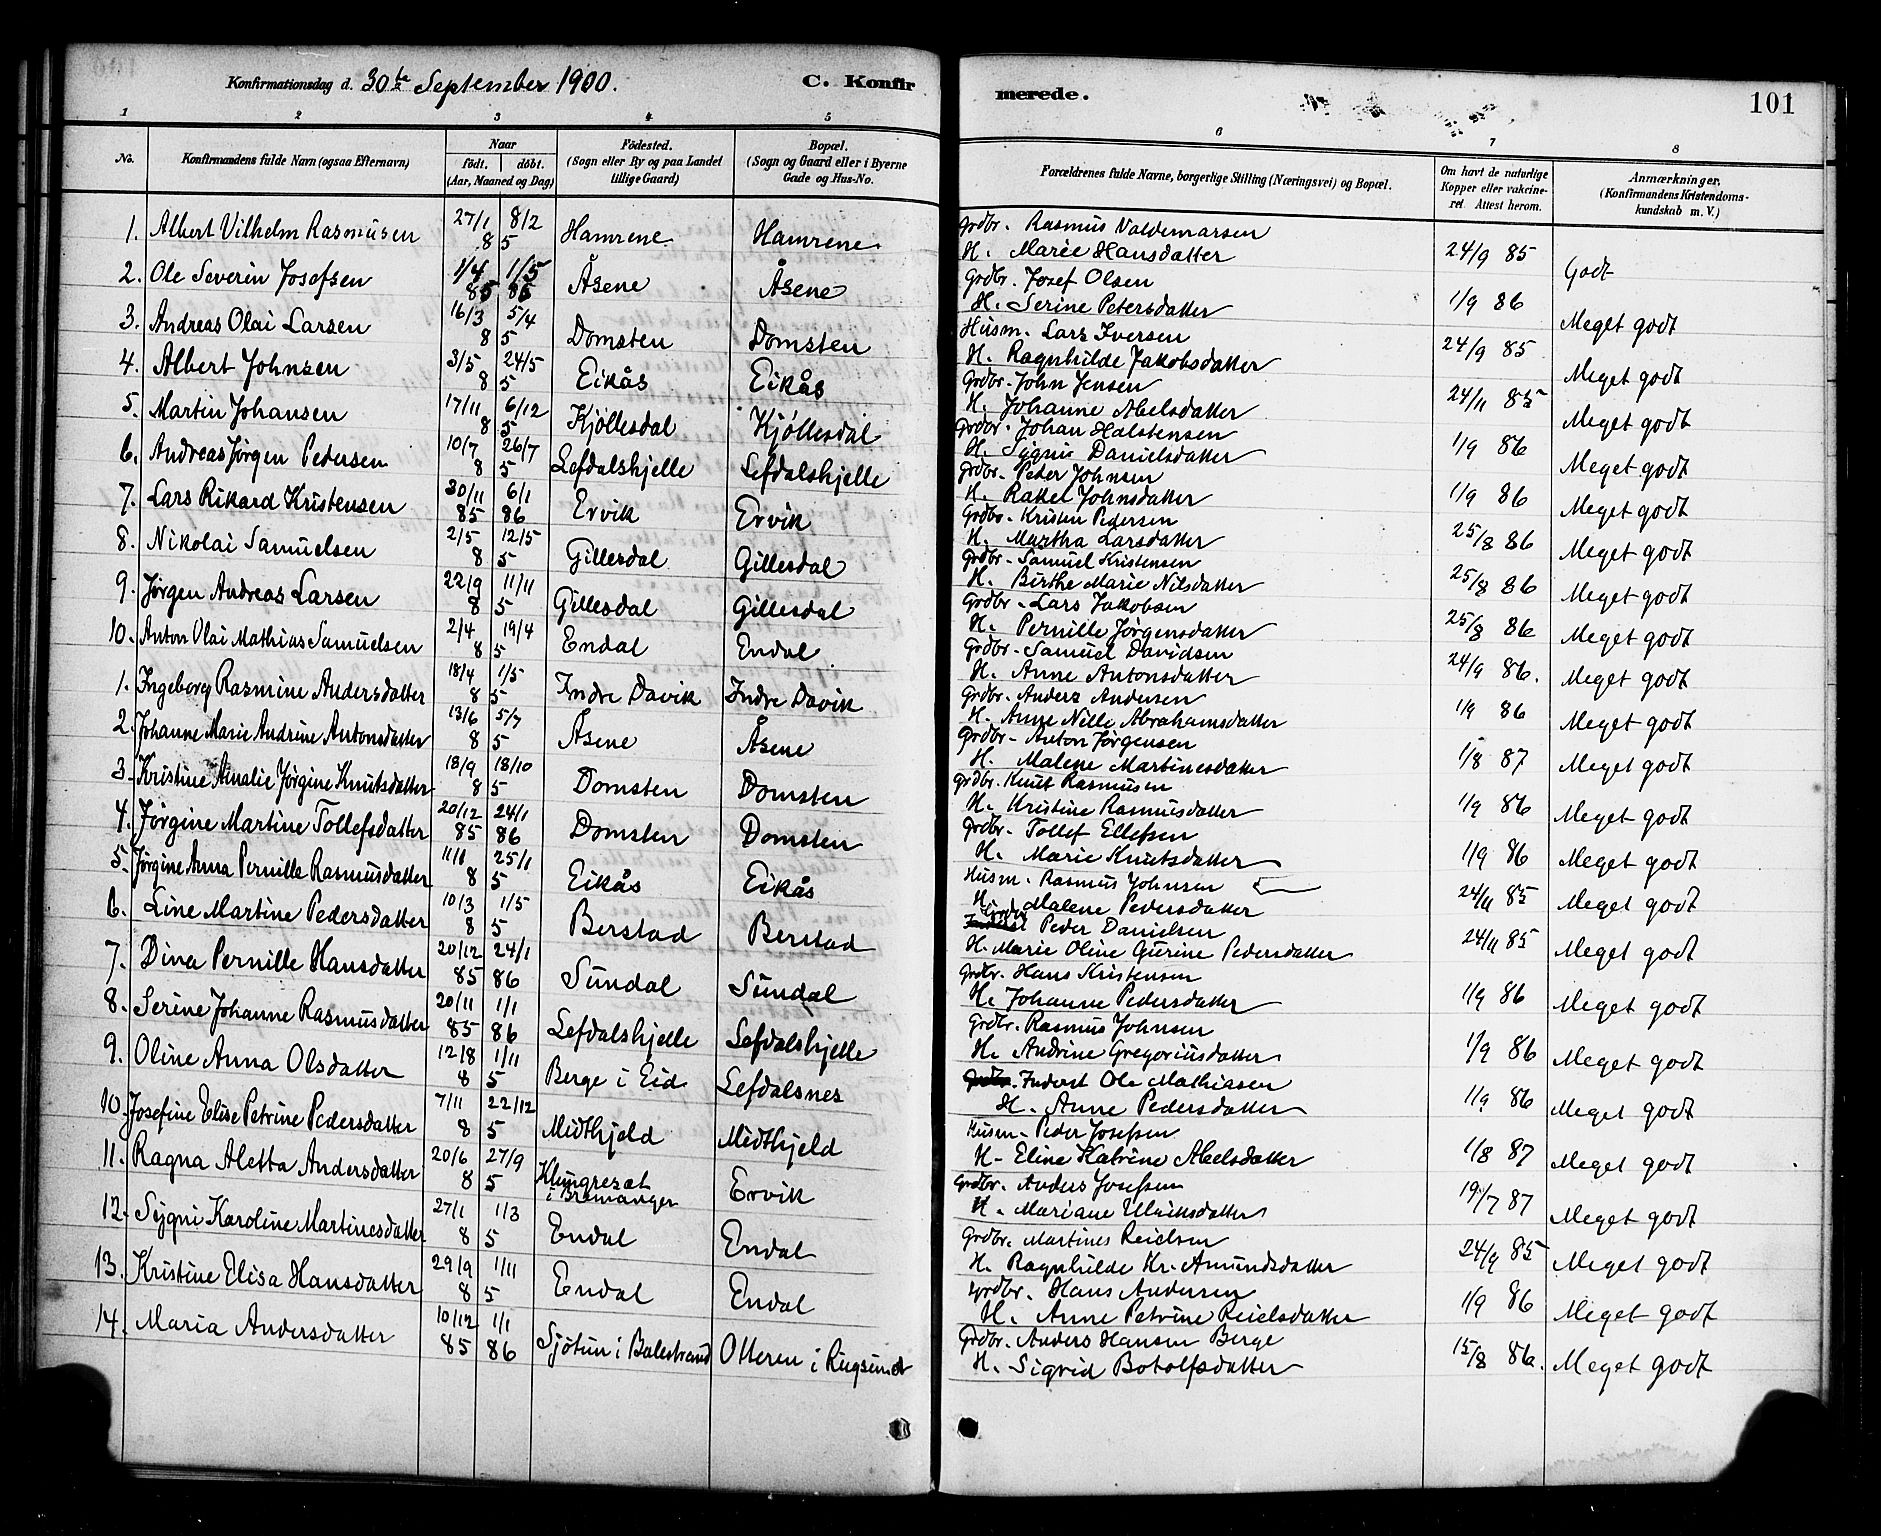 Konfirmationsdag d. 30te September 1900. C. Konfirmerede. 101
1 2 3 4 5 6 7 8
No. Konfirmandens fulde Navn (ogsaa Efternavn) Naar födt. döbt. (Aar, Maaned og Dag) Födested. (Sogn eller By og paa Landet tillige Gaard) Bopæl. (Sogn og Gaard eller i Byerne Gade og Hus-No. Forældrenes fulde Navne, borgerlige Stilling (Næringsvei) og Bopæl. Om havt de naturlige Kopper eller vakcineret. Attest herom. Anmærkninger. (Konfirmandens Kristendomskundskab m. V.)
1. Albert Vilhelm Rasmusen 27/1 8/2 85 Hamrene Hamrene Grdbr. Rasmus Valdemarsen
H. Marie Hansdatter 24/9 85 Godt
2. Ole Severin Josefsen 1/4 85 1/5 85 Åsene Åsene Grdbr. Josef Olsen
H. Serine Petersdatter 1/9 86 Meget godt
3. Andreas Olai Larsen 16/3 5/4 85 Domsten Domsten Husm. Lars Iversen
H. Ragnhilde Jakobsdatter 24/9 85 Meget godt
4. Albert Johnsen 3/5 24/5 85 Eikås Eikås Grdbr. John Jensen
H. Johanne Abelsdatter 24/11 85 Meget godt
5. Martin Johansen 17/11 6/12 85 Kjöllesdal Kjöllesdal Grdbr. Johan Halstensen
H. Sygni Danielsdatter 1/9 86 Meget godt
6. Andreas Jørgen Pedersen 10/7 26/7 85 Lefdalshjelle Lefdalshjelle Grdbr. Peder Johnsen
H. Rakel Johnsdatter 1/9 86 Meget godt
7. Lars Rikard Kristensen 30/11 85 6/1 86 Ervik Ervik Grdbr. Kristen Pedersen
H. Martha Larsdatter 25/8 86 Meget godt
8. Nikolai Samuelsen 2/5 12/5 85 Gillesdal Gillesdal Grdbr. Samuel Kristensen
H. Birthe Marie Nilsdatter 25/8 86 Meget godt
9. Jørgen Andreas Larsen 22/9 11/11 85 Gillesdal Gillesdal Grdbr. Lars Jakobsen
H. Pernille Jørgensdatter 25/8 86 Meget godt
10. Anton Olai Mathias Samuelsen 2/4 19/4 85 Endal Endal Grdbr. Samuel Davidsen
H. Anne Antonsdatter 24/9 86. Meget godt
1. Ingeborg Rasmine Andersdatter 18/4 1/5 85 Indre Davik Indre Davik Grdbr. Anders Andersen
H. Anne Nille Abrahamsdatter 1/9 86 Meget godt
2. Johanne Marie Andrine Antonsdatter 13/6 5/7 85 Åsene Åsene Grdbr. Anton Jørgensen
H. Malene Martinesdatter 1/8 87 Meget godt
3. Kristine Amalie Jørgine Knutsdatter 18/9 18/10 85 Domsten Domsten Grdbr. Knut Rasmusen
H. Kristine Rasmusdatter 1/9 86 Meget godt
4. Jørgine Martine Tollefsdatter 20/12 85 24/1 86 Domsten Domsten Grdbr. Tollef Ellefsen
H. Marie Knutsdatter 1/9 86 Meget godt
5. Jørgine Anna Pernille Rasmusdatter 11/1 25/1 85 Eikås Eikås Husm. Rasmus Johnsen
H. Malene Pedersdatter 24/11 85 Meget godt
6. Line Martine Pedersdatter 10/3 1/5 85 Berstad Berstad Grdbr Peder Danielsen
H. Marie Oline Gurine Pedersdatter 24/11 85 Meget godt
7. Dina Pernille Hansdatter 20/12 85 24/1 86 Sundal Sundal Grdbr. Hans Kristensen
H. Johanne Pedersdatter 1/9 86 Meget godt
8. Serine Johanne Rasmusdatter 20/11 85 1/1 86 Lefdalshjelle Lefdalshjelle Grdbr. Rasmus Johnsen
H. Andrine Gregoriusdatter 1/9 86 Meget godt
9. Oline Anna Olsdatter 12/8 1/11 85 Berge i Eid Lefdalsnes Grdbr. Inderst Ole Mathiasen
H. Anne Pedersdatter 1/9 86 Meget godt
10. Josefine Elise Petrine Pedersdatter 7/11 22/12 85 Midthjeld Midthjeld Husm. Peder Josefsen
H. Eline Katrine Abelsdatter 1/8 87 Meget godt
11. Ragna Aletta Andersdatter 20/6 27/9 85 Klungreset i Bremanger Ervik Grdbr. Anders Josefsen
H. Mariane Ulriksdatter 19/7 87 Meget godt
12. Sygni Karoline Martinesdatter 27/1 1/3 85 Endal Endal Grdbr. Martines Reielsen
H. Ragnhilde Kr. Amundsdatter 24/9 85 Meget godt
13. Kristine Elisa Hansdatter 29/9 1/11 85 Endal Endal Grdbr. Hans Andersen
H. Anne Petrine Reielsdatter 1/9 86 Meget godt
14. Maria Andersdatter 10/12 85 1/1 86 Sjötun i Balestrand Otteren i Rugsund Grdbr. Anders Hansen Berge
H. Sigrid Botolfsdatter 15/8 86. Meget godt